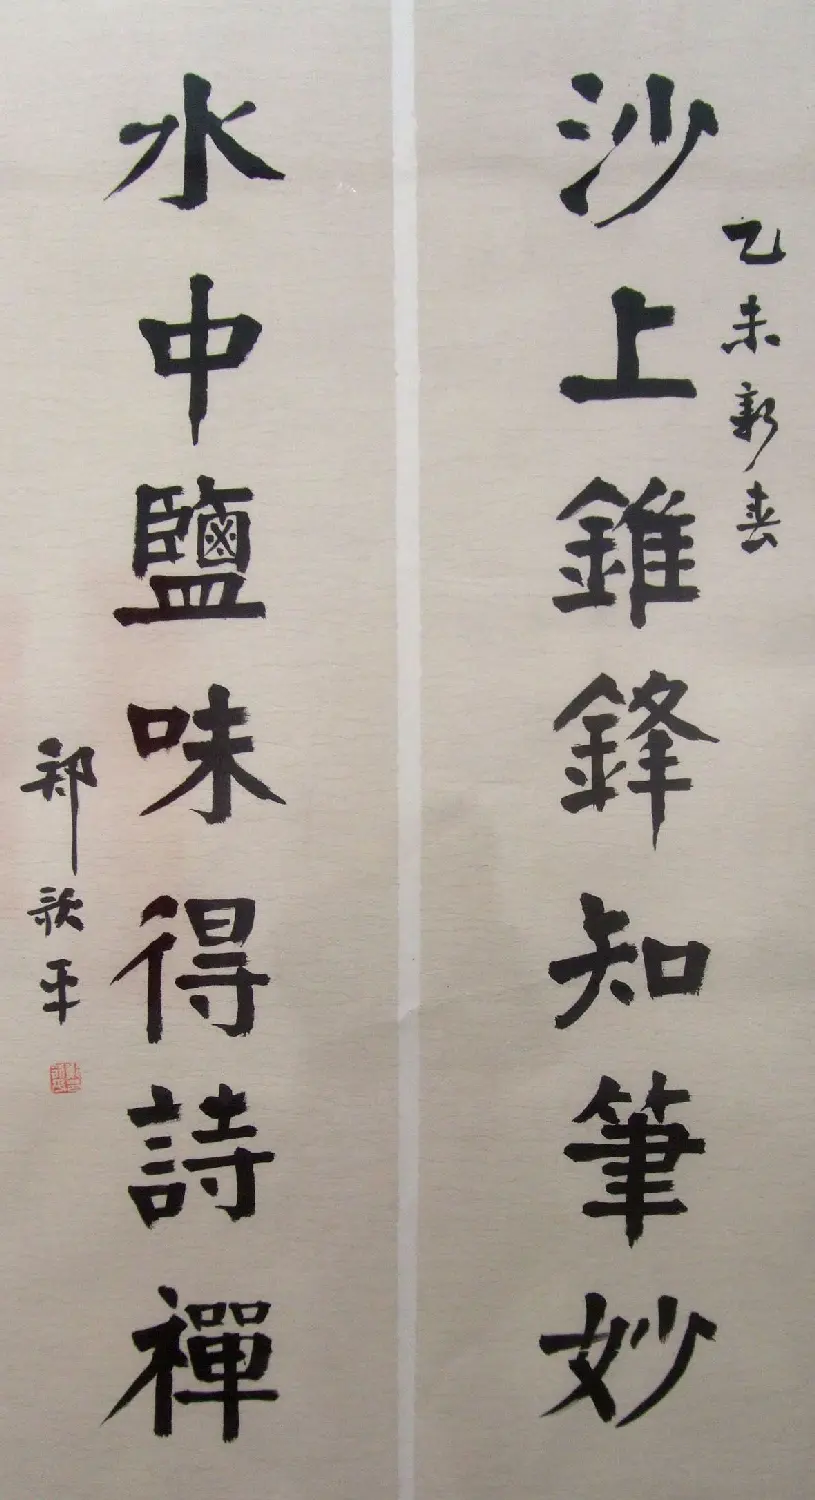 乙未新春
沙上錐鋒知筆妙
水中鹽味得詩禪
郑歌平